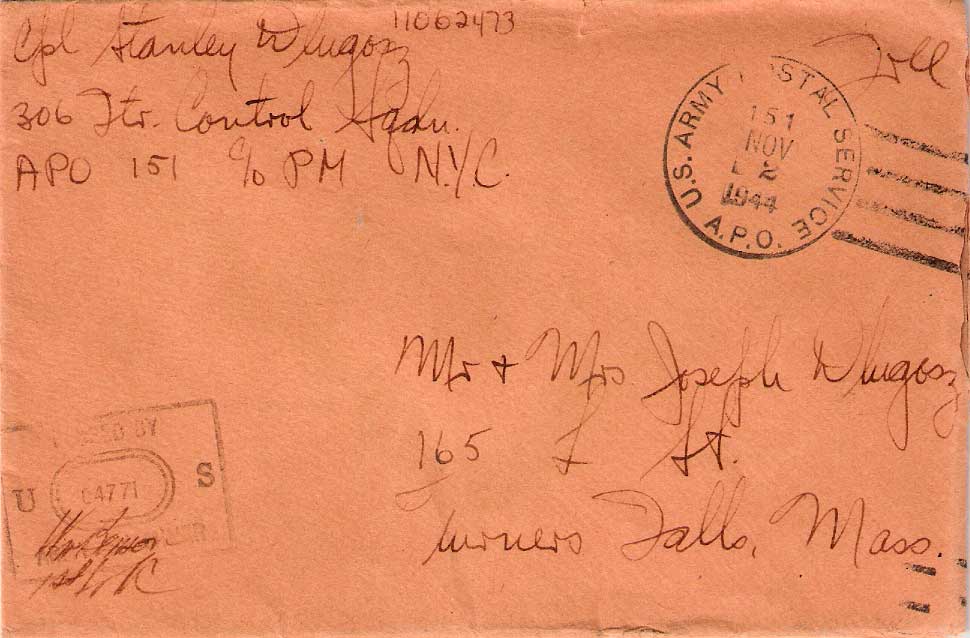 Cpl Stanley Dlugosz 11062473
306 Ftr. Control Sqdn.
APO 151 c/o PM N.Y.C.
Free
U.S. ARMY POSTAL SERVICE
151
NOV
2
1944
A.P.O.
Mr + Mrs Joseph Dlugosz
165 L St.
Turners Falls, Mass.
PASSED BY
U 04771 S